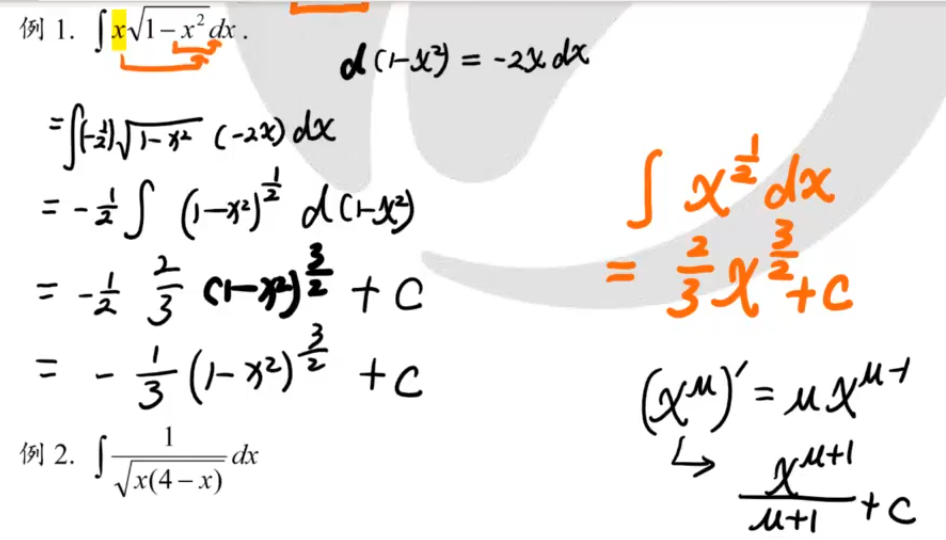 例 1. ∫ x√(1−x²) dx .
d(1−x²) = −2x dx
= ∫(−1/2)√(1−x²) (−2x) dx
= −1/2 ∫ (1−x²)^(1/2) d(1−x²)
= −1/2 2/3 (1−x²)^(3/2) + C
= − 1/3 (1−x²)^(3/2) + C
∫ x^(1/2) dx
= 2/3 x^(3/2) + C
(x^μ)′ = μx^(μ−1)
↳ x^(μ+1)/(μ+1) + C
例 2. ∫ 1/√(x(4−x)) dx